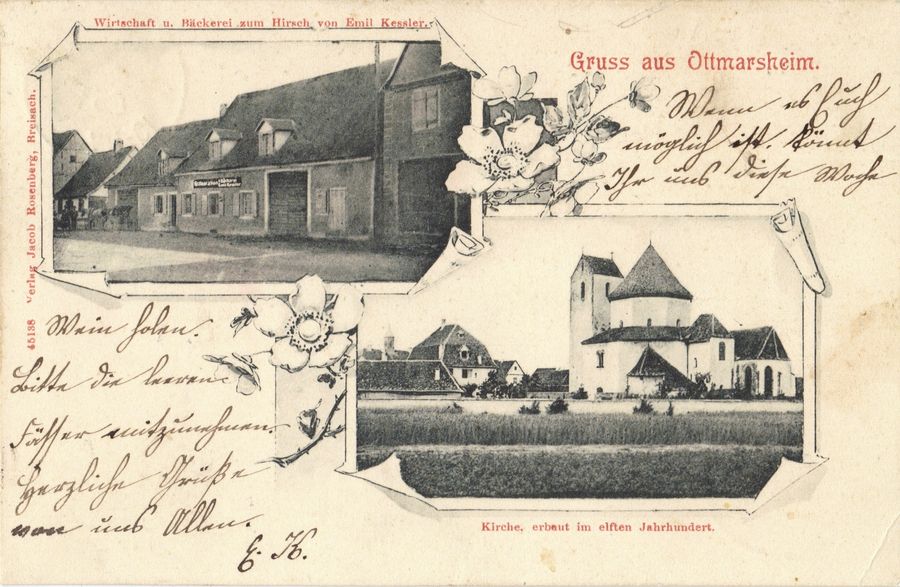 Wirtschaft u. Bäckerei zum Hirsch von Emil Kessler.
Gruss aus Ottmarsheim.
Wenn es Euch
möglich ist. könnt
Ihr uns diese Woche
Wein holen.
Bitte die leeren
Fässer mitzunehmen.
Herzliche Grüße
von uns Allen.
E. K.
Kirche, erbaut im elften Jahrhundert.
45138 Verlag Jacob Rosenberg, Breisach.